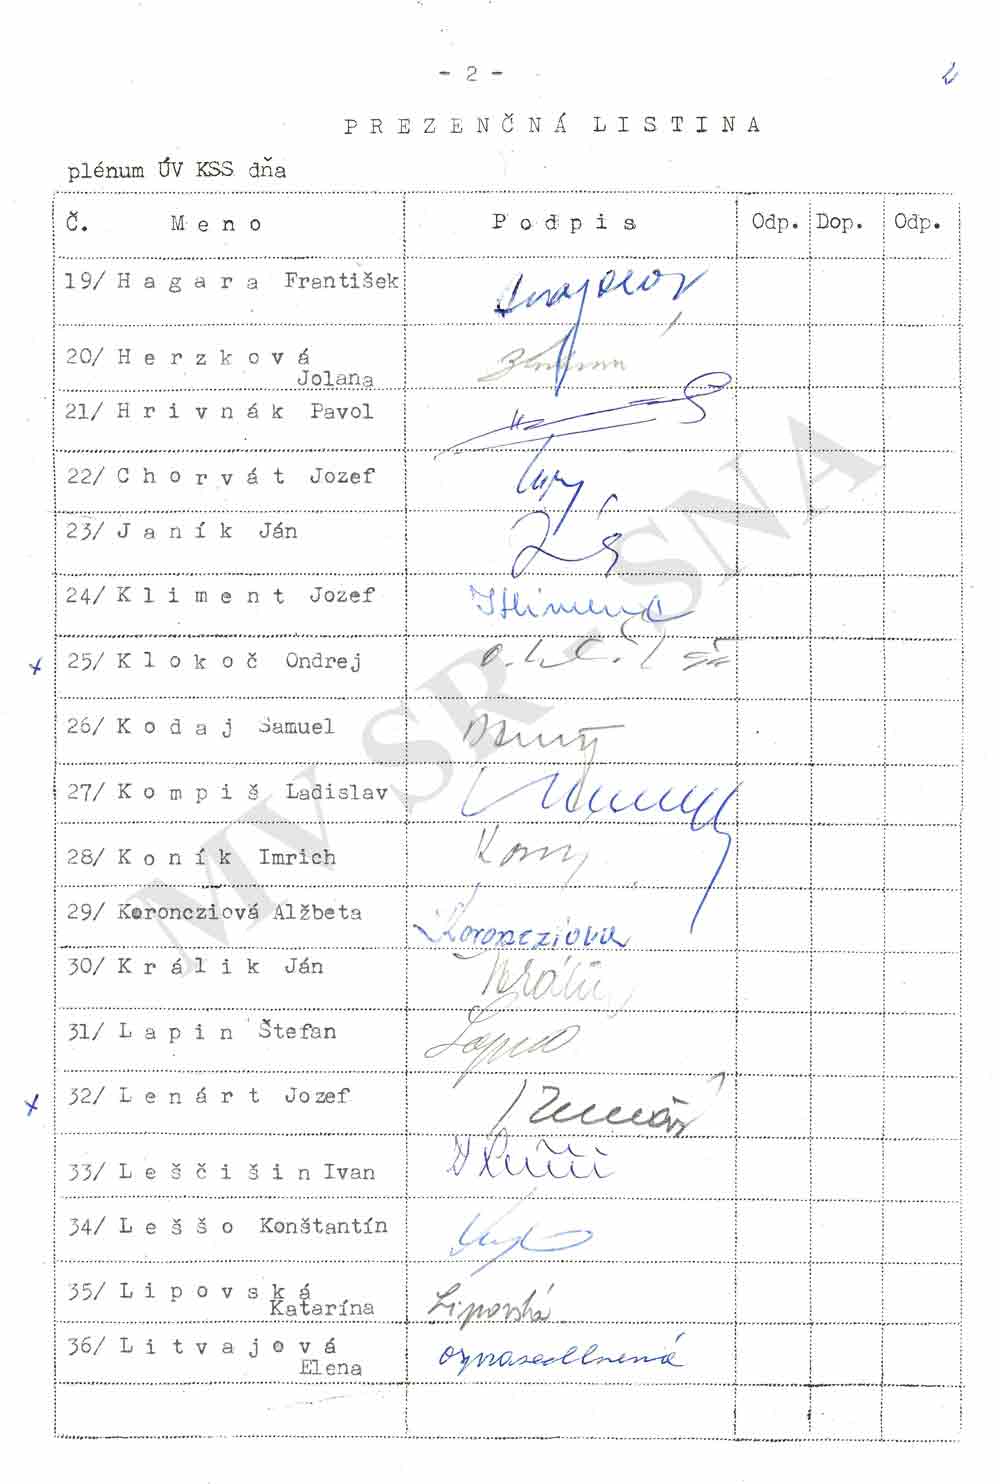 - 2 -
2
PREZENČNÁ LISTINA
plénum ÚV KSS dňa
Č. Meno Podpis Odp. Dop. Odp.
19/ Hagara František
20/ Herzková
Jolana
21/ Hrivnák Pavol
22/ Chorvát Jozef
23/ Janík Ján
24/ Kliment Jozef
x 25/ Klokoč Ondrej
26/ Kodaj Samuel
27/ Kompiš Ladislav
28/ Koník Imrich
29/ Koroncziová Alžbeta Koroncziova
30/ Králik Ján Králik
31/ Lapin Štefan Lapin
x 32/ Lenárt Jozef Lenárt
33/ Leščišin Ivan
34/ Leššo Konštantín
35/ Lipovská
Katarína Lipovská
36/ Litvajová
Elena ospravedlnená
MV SR - SNA